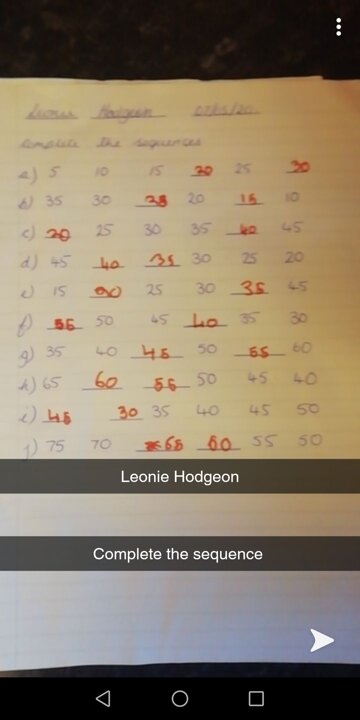 Leonie Hodgeon 07/05/20
Complete the sequences
a) 5 10 15 20 25 30
b) 35 30 25 20 15 10
c) 20 25 30 35 40 45
d) 45 40 35 30 25 20
e) 15 20 25 30 35 45
f) 55 50 45 40 35 30
g) 35 40 45 50 55 60
h) 65 60 55 50 45 40
i) 45 30 35 40 45 50
j) 75 70 65 60 55 50
Leonie Hodgeon
Complete the sequence